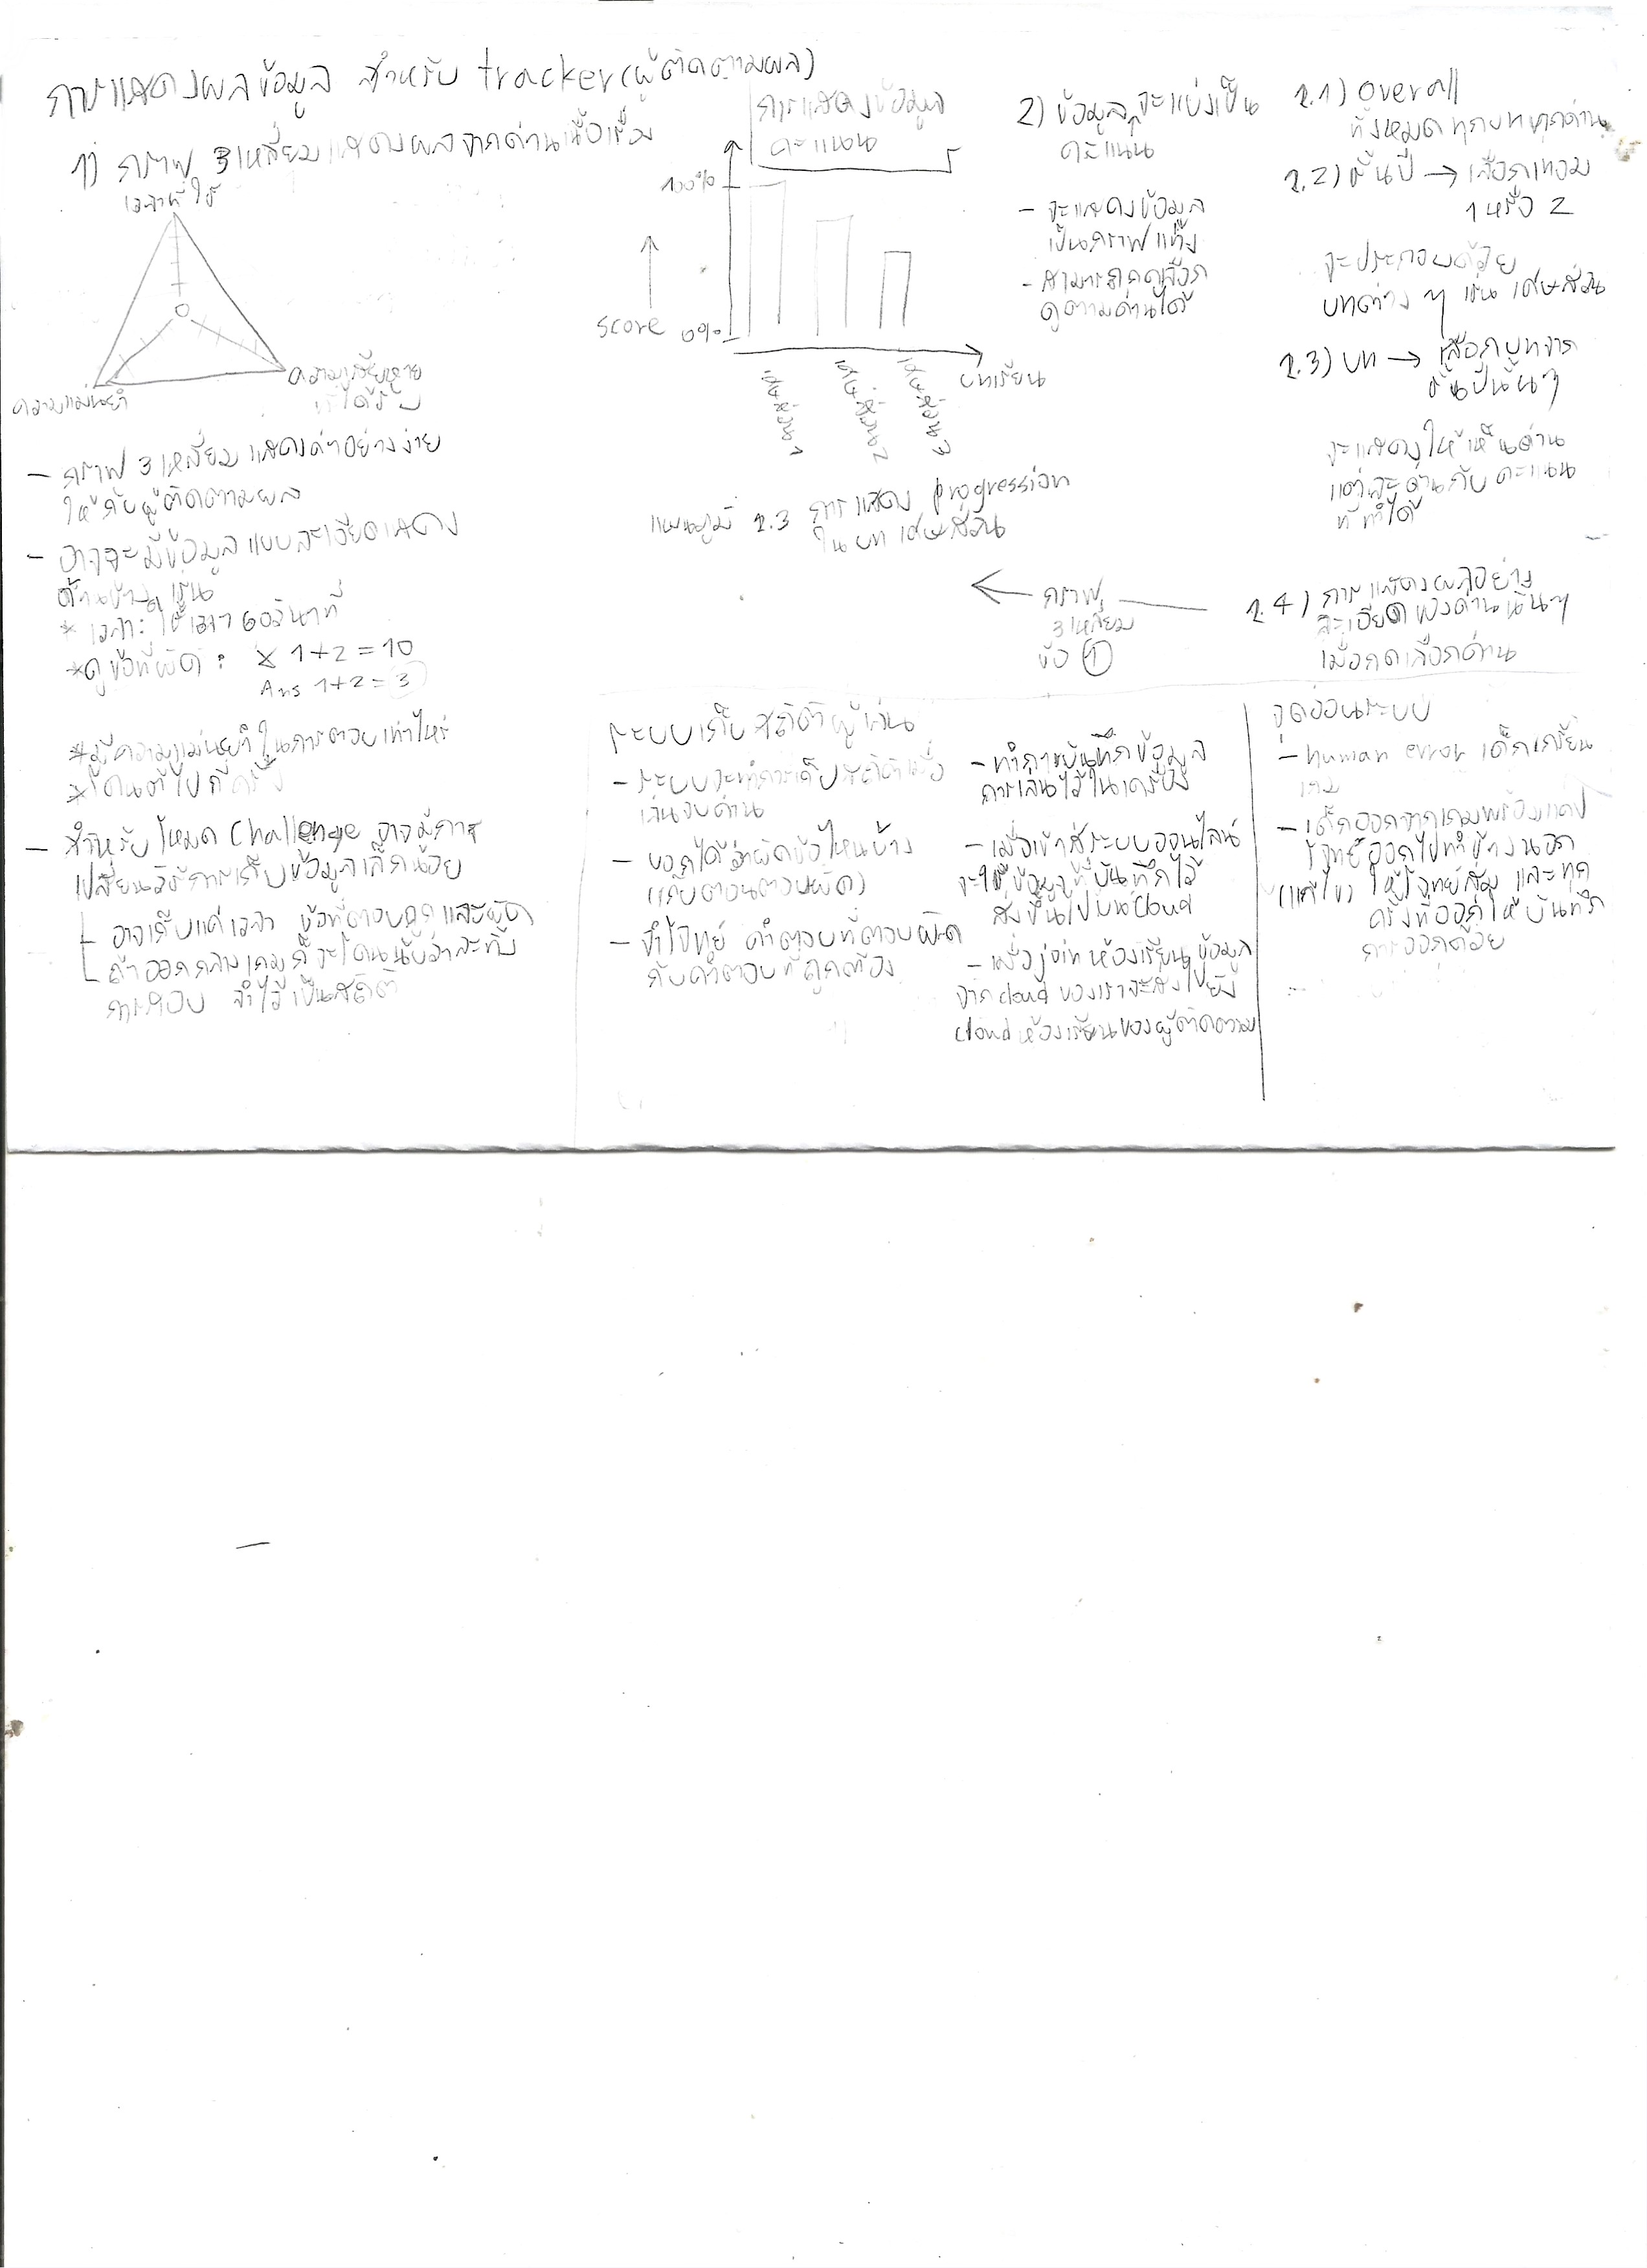 การแสดงผลข้อมูล สำหรับ tracker (ผู้ติดตามผล)
1) กราฟ 3 เหลี่ยม แสดงผลจากด่านเนื้อเรื่อง
เวลาที่ใช้
ความแม่นยำ
ความเสียหาย
ที่ได้รับ
- กราฟ 3 เหลี่ยม แสดงค่าอย่างง่าย
ให้กับผู้ติดตามผล
- อาจจะมีข้อมูลแบบละเอียดแสดง
ด้านข้าง เช่น
* เวลา : ใช้เวลา 60 วินาที
* ดูข้อที่ผิด : x 1+2 = 10
Ans 1+2 = 3
* มีความแม่นยำในการตอบเท่าไหร่
* โดนตีไปกี่ครั้ง
- สำหรับโหมด Challenge อาจมีการ
เปลี่ยนวิธีการเก็บข้อมูลเล็กน้อย
อาจเก็บแค่เวลา ข้อที่ตอบถูกและผิด
ถ้าออกกลางเกมก็จะโดนนับว่าละทิ้ง
การสอบ จำไว้เป็นสถิติ
การแสดงข้อมูล
คะแนน
100%
score
0%
บทเรียน
เศษส่วน 1
เศษส่วน 2
เศษส่วน 3
แผนภูมิ 2.3 การแสดง progression
ในบท เศษส่วน
2) ข้อมูลจะแบ่งเป็น
คะแนน
- จะแสดงข้อมูล
เป็นกราฟแท่ง
- สามารถกดเลือก
ดูตามด่านได้
2.1) overall
ทั้งหมดทุกบททุกด่าน
2.2) ชั้นปี → เลือกเทอม
1 หรือ 2
จะประกอบด้วย
บทต่าง ๆ เช่น เศษส่วน
2.3) บท → เลือกบทจาก
ชั้นปีนั้นๆ
จะแสดงให้เห็นด่าน
แต่ละด่านกับคะแนน
ที่ทำได้
2.4) การแสดงผลอย่าง
ละเอียดของด่านนั้นๆ
เมื่อกดเลือกด่าน
กราฟ
3 เหลี่ยม
ข้อ 1
ระบบเก็บสถิติผู้เล่น
- ระบบจะทำการเก็บสถิติเมื่อ
เล่นจบด่าน
- บอกได้ว่าผิดข้อไหนบ้าง
(เก็บตอนตอบผิด)
- จำโจทย์ คำตอบที่ตอบผิด
กับคำตอบที่ถูกต้อง
- ทำการบันทึกข้อมูล
การเล่นไว้ในเครื่อง
- เมื่อเข้าสู่ระบบออนไลน์
จะใช้ข้อมูลที่บันทึกไว้
ส่งขึ้นไปบน cloud
- เมื่อ join ห้องเรียน ข้อมูล
จาก cloud ของเราจะส่งไปยัง
cloud ห้องเรียนของผู้ติดตาม
จุดอ่อนระบบ
- human error เด็กเกรียน
เกม
- เด็กออกจากเกมพร้อมแคป
โจทย์ออกไปทำข้างนอก
(แก้ไข) ให้โจทย์สุ่ม และทุก
ครั้งที่ออกให้บันทึก
การออกด้วย